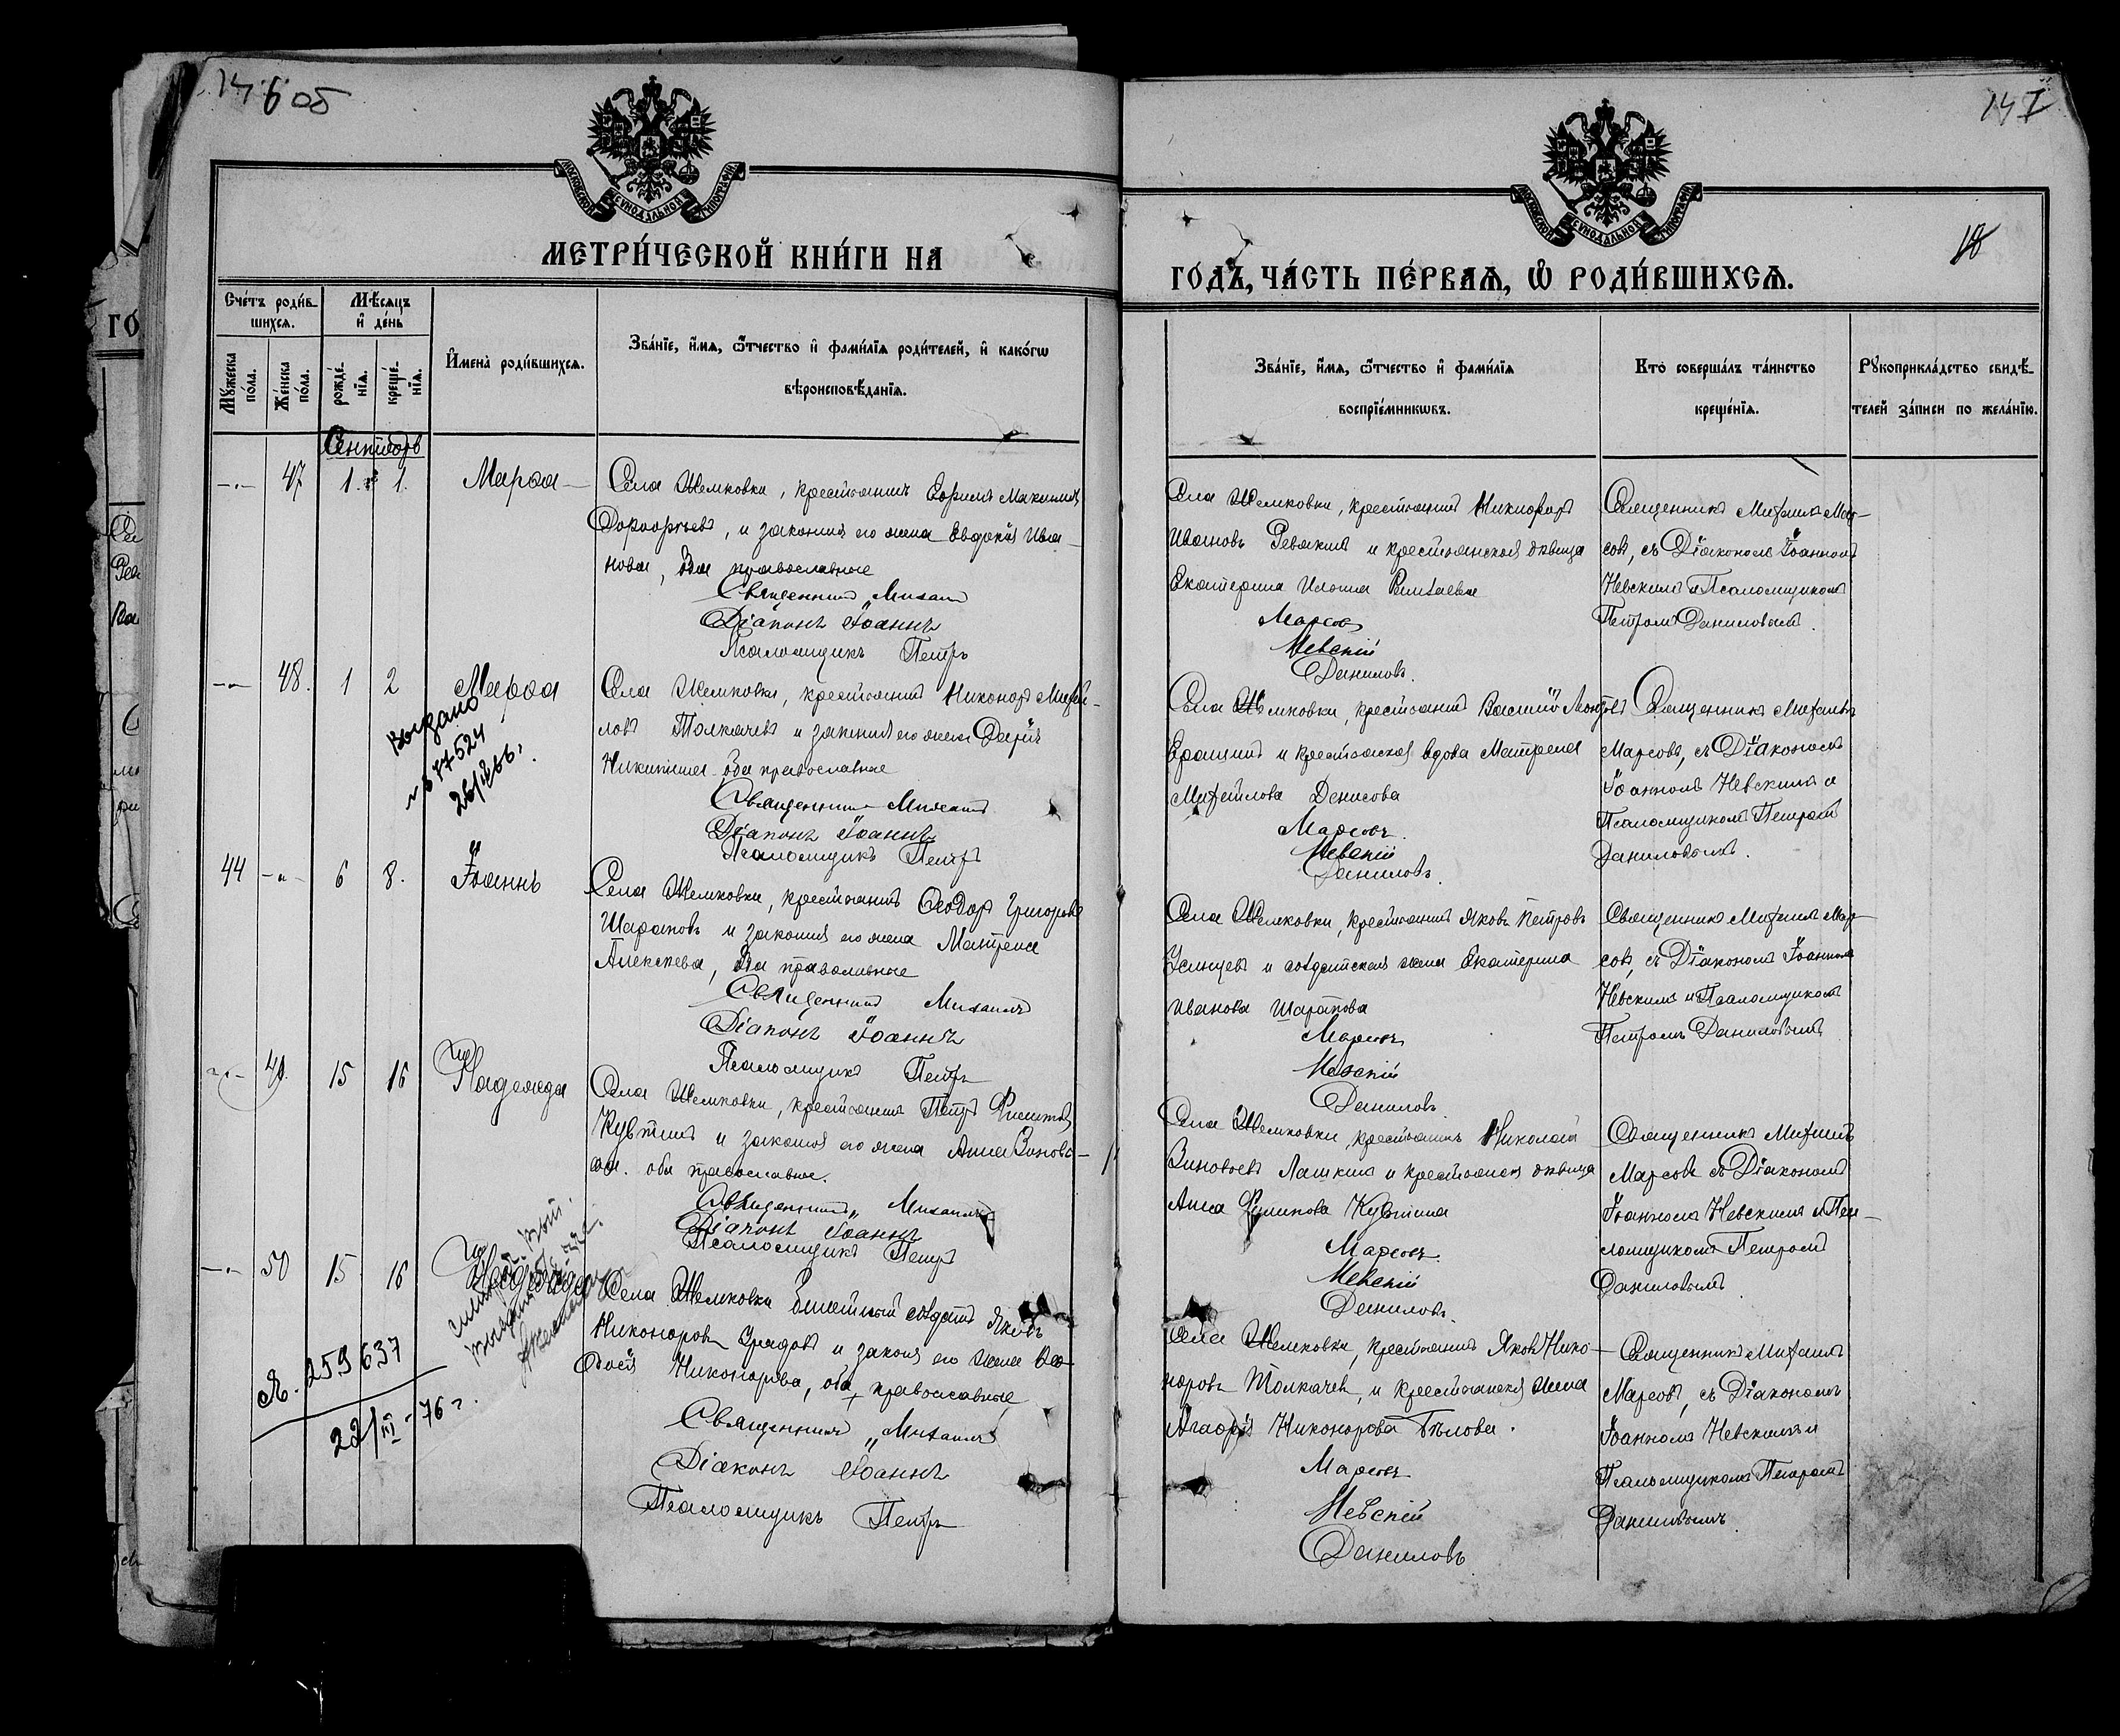 146 об
147
18
МОСКОВСКОЙ СѴНОДАЛЬНОЙ ТИПОГРАФІИ.
МЕТРИ́ЧЕСКОЙ КНИ́ГИ НА
МОСКОВСКОЙ СѴНОДАЛЬНОЙ ТИПОГРАФІИ.
ГО́ДЪ, ЧА́СТЬ ПЕ́РВАѦ, Ѽ РОДИ́ВШИХСѦ.
Сче́тъ роди́в-
шихсѧ.
Мѣ́сѧцъ
и҆ де́нь
Мꙋ́жеска
по́ла.
Же́нска
по́ла.
рожде́-
нїѧ.
креще́-
нїѧ.
И҆мена̀ роди́вшихсѧ.
Зва́нїе, и҆́мѧ, ѻ҆́тчество и҆ фами́лїѧ роди́телей, и҆ како́гѡ
вѣроисповѣ́данїѧ.
Зва́нїе, и҆́мѧ, ѻ҆́тчество и҆ фами́лїѧ
воспрїе́мникѡвъ.
Кто̀ соверша́лъ та́инство
креще́нїѧ.
Рꙋкоприкла́дство свидѣ́-
телей за́писи по жела́нїю.
Сентябрь
47 1. 1. Марѳа
Села Шемковки, крестьянинъ Ефимъ Максимъ
Дороѳѣевъ, и законная его жена Евдокія Ива-
нова, оба православные
Священникъ Михаилъ
Діаконъ Іоаннъ
Псаломщикъ Петръ
Села Шемковки, крестьянинъ Никифоръ
Ивановъ Ревякинъ и крестьянская дѣвица
Екатерина
Марсовъ
Невскій
Даниловъ.
Священникъ Михаилъ Мар-
совъ, съ Діакономъ Іоанномъ
Невскимъ и Псаломщикомъ
Петромъ Даниловымъ.
48. 1 2 Марѳа
Выдано
№ 87524
26/ 66.
Села Шемковки, крестьянинъ Никаноръ Михай-
ловъ Толкачевъ и законная его жена Дарія
Никитина оба православные
Священникъ Михаилъ
Діаконъ Іоаннъ
Псаломщикъ Петръ
Села Шемковки, крестьянинъ Василій
Ерошинъ и крестьянская вдова Матрена
Михайлова Денисова
Марсовъ.
Невскій
Даниловъ.
Священникъ Михаилъ
Марсовъ, съ Діакономъ
Іоанномъ Невскимъ и
Псаломщикомъ Петромъ
Даниловымъ.
44 6 8. Іоаннъ
Села Шемковки, крестьянинъ Ѳеодоръ Григорьевъ
Шараповъ и законная его жена Матрена
Алексѣева, оба православные
Священникъ Михаилъ
Діаконъ Іоаннъ
Псаломщикъ Петръ
Села Шемковки, крестьянинъ Яковъ Петровъ
и солдатская жена Екатерина
Иванова Шарапова
Марсовъ
Невскій
Даниловъ.
Священникъ Михаилъ Мар-
совъ, съ Діакономъ Іоанномъ
Невскимъ и Псаломщикомъ
Петромъ Даниловымъ
49. 15 16 Надежда
Села Шемковки, крестьянинъ Петръ
и законная его жена Анна Зиновье-
ва. оба православные.
Священникъ Михаилъ
Діаконъ Іоаннъ
Псаломщикъ Петръ
Села Шемковки, крестьянинъ Николай
Зиновьевъ Лашкинъ и крестьянская дѣвица
Анна
Марсовъ
Невскій
Даниловъ.
Священникъ Михаилъ
Марсовъ съ Діакономъ
Іоанномъ Невскимъ и Пса-
ломщикомъ Петромъ
Даниловымъ
50 15 16 Надежда
Я. 259637
22/III-76 г.
Села Шемковки солдатъ Яковъ
Никоноровъ и законная его жена Ѳео-
досія Никонорова, оба православные
Священникъ Михаилъ
Діаконъ Іоаннъ
Псаломщикъ Петръ
Села Шемковки, крестьянинъ Яковъ Нико-
норовъ Толкачевъ, и крестьянская жена
Агафія Никонорова Бѣлова.
Марсовъ
Невскій
Даниловъ
Священникъ Михаилъ
Марсовъ, съ Діакономъ
Іоанномъ Невскимъ и
Псаломщикомъ Петромъ
Даниловымъ.